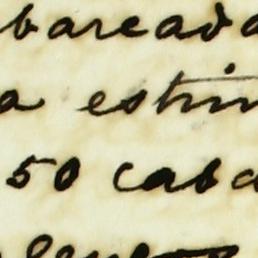 bareada
a estim
50 casa